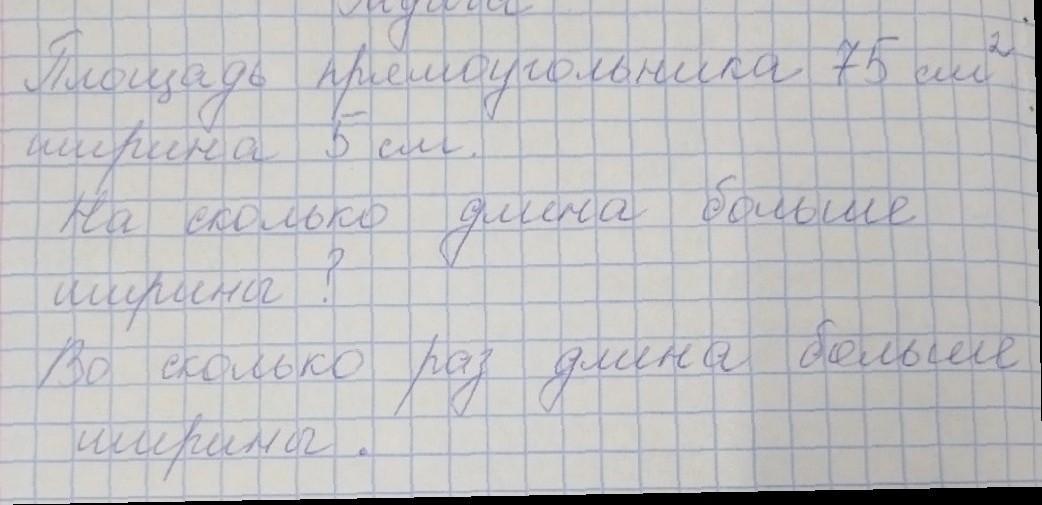 Площадь прямоугольника 75 см²
ширина 5 см.
На сколько длина больше
ширины?
Во сколько раз длина больше
ширины.